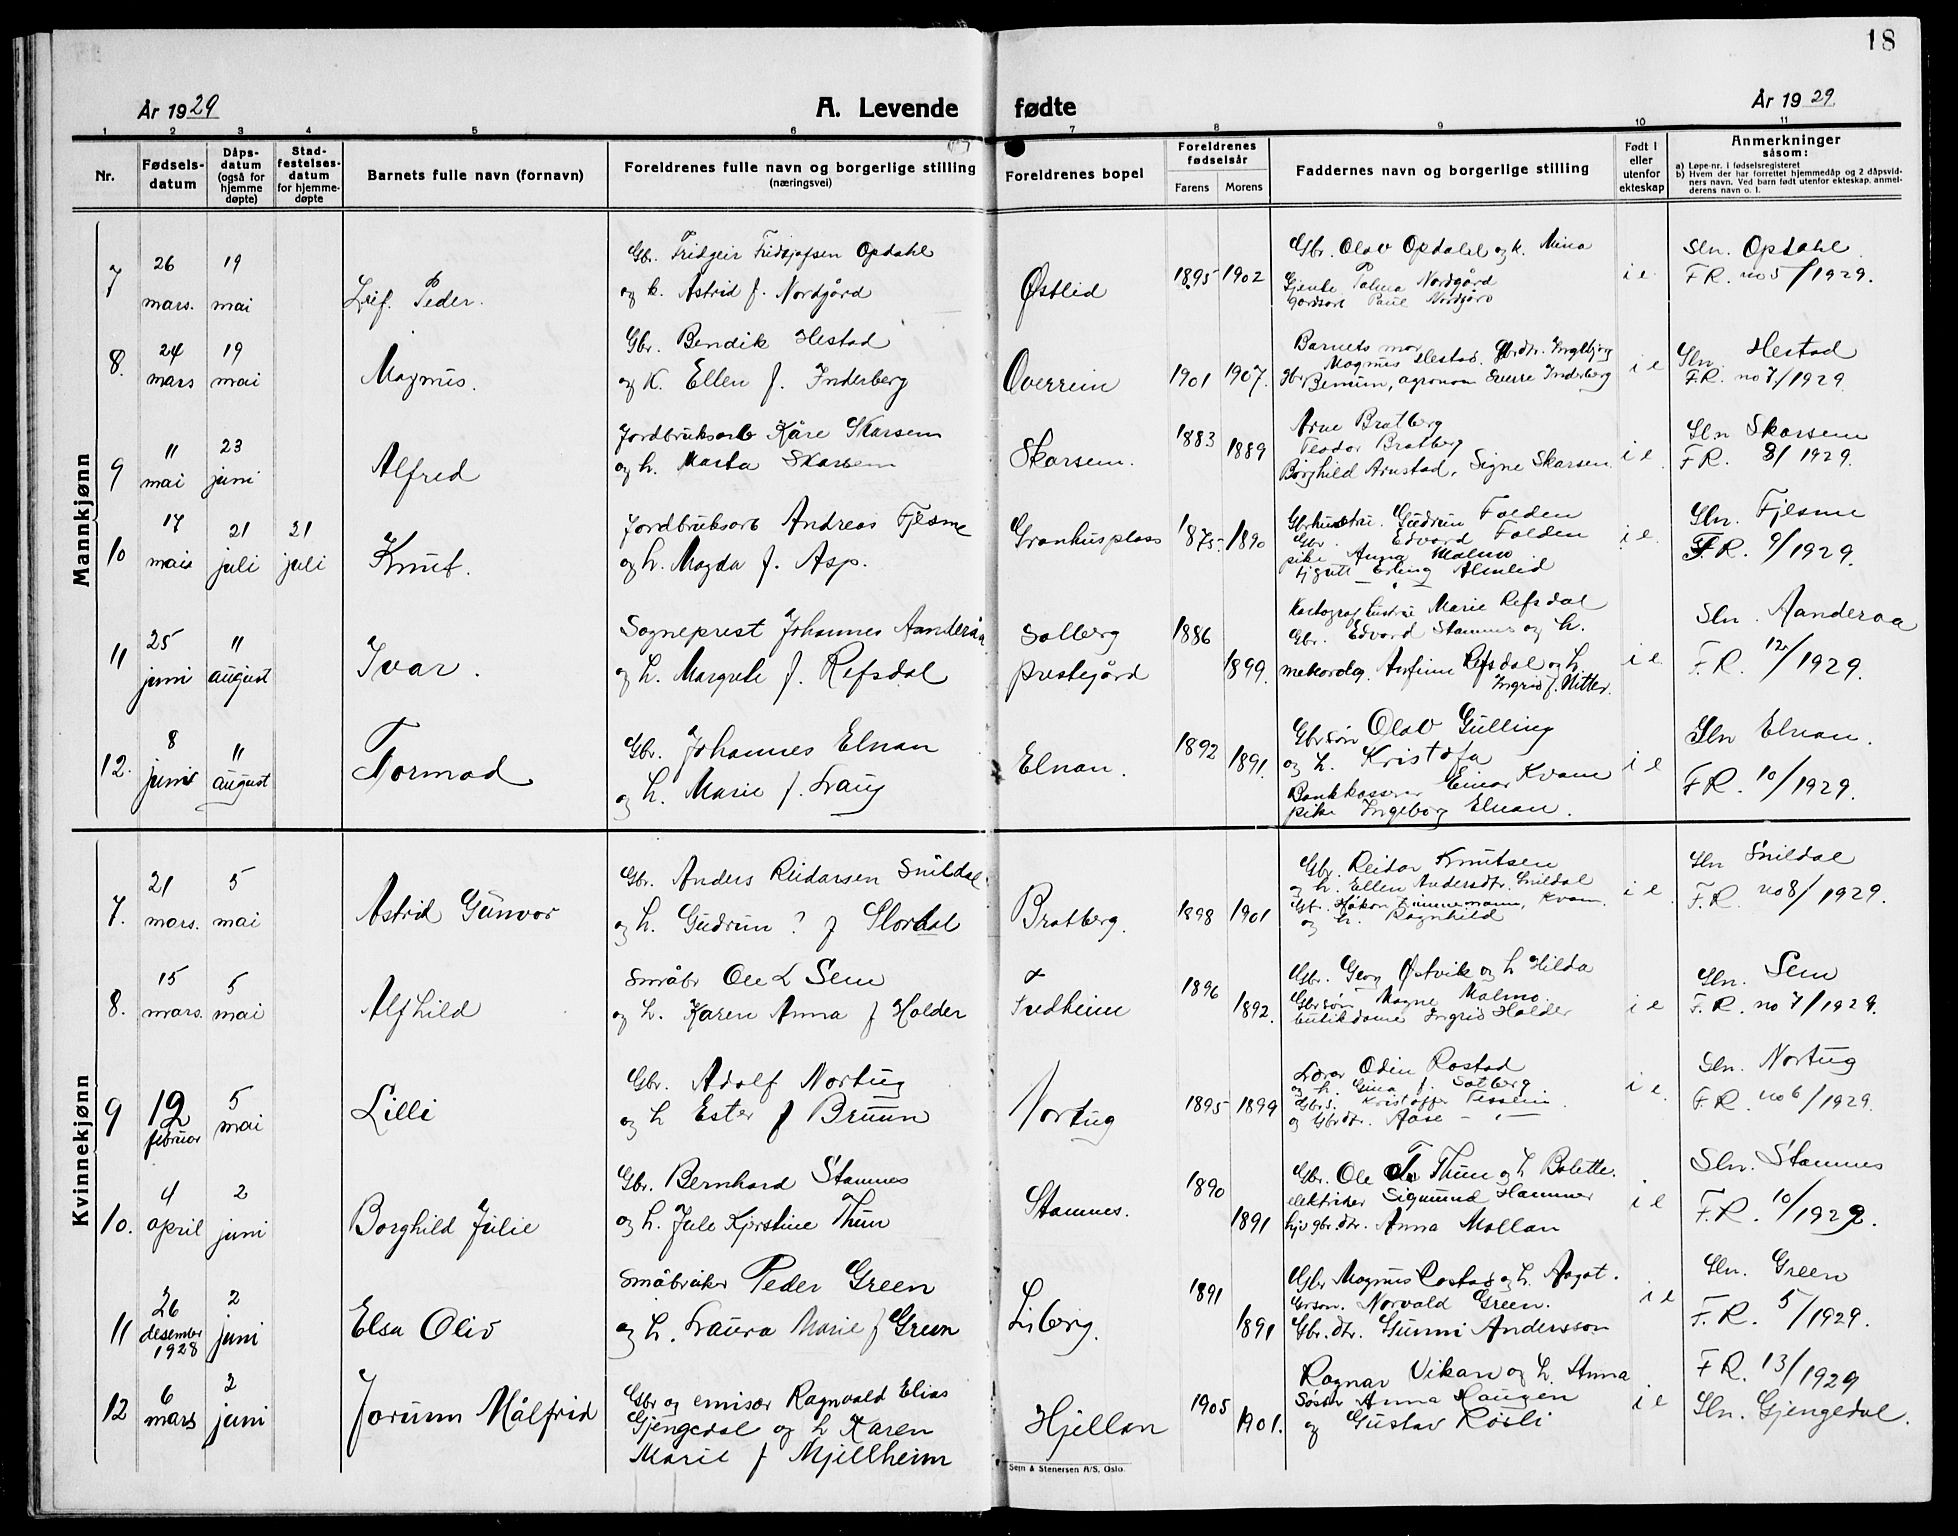 18
År 1929
A. Levende fødte
År 1929
1 2 3 4 5 6 7 8 9 10 11
Nr.
Fødsels-
datum
Dåps-
datum
(også for
hjemme
døpte)
Stad-
festelses-
datum
for hjemme-
døpte
Barnets fulle navn (fornavn)
Foreldrenes fulle navn og borgerlige stilling
(næringsvei)
Foreldrenes bopel
Foreldrenes
fødselsår
Farens Morens
Faddernes navn og borgerlige stilling
Født i
eller
utenfor
ekteskap
Anmerkninger
såsom:
a) Løpe-nr. i fødselsregisteret
b) Hvem der har forrettet hjemmedåp og 2 dåpsvid-
ners navn. Ved barn født utenfor ekteskap, anmel-
derens navn o. l.
Mannkjønn
7
26
mars.
19
mai
Leif Peder.
Gbr. Fridgeir Fridtjofsen Opdahl
og h. Astrid f. Nordgård
Østlid
1895 1902
Gbr. Olav Opdahl og k. Mina
Gjente Palma Nordgård
Gardsarb Paul Nordgård
i e
Sln. Opdahl
F.R. no 5/1929.
8.
24
mars
19
mai
Magnus.
Gbr. Bendik Hestad
og k. Ellen f. Inderberg
Overrein
1901 1907.
Barnets mor
Magnus Hestad. Gbrdtr. Ingebjørg
gbr Benum, agronom Sverre Inderberg
i e
Sln. Hestad
F.R. no 7/1929
9
11
mai
23
juni
Alfred
Jordbruksarb Kåre Skarsem
og h. Marta Skarsem
Skarsem.
1883 1889
Arne Bratberg
Teodor Bratberg
Borghild Arnstad, Signe Skarsem
i e
Sln Skarsem
F.R. 8/1929.
10
17
mai
21
juli
21
juli
Knut.
Jordbruksarb Andreas Fjesme
og h. Magda f. Asp.
Granhusplass
1875 1890
Gbrhustru. Gudrun Folden
Gbr. Edvard Folden
pike Anna Malmo
tjgutt Erling Almlid
i e
Sln. Fjesme
F.R. 9/1929.
11
25
juni
11
august
Ivar.
Sogneprest Johannes Aanderaa
og h. Margrete f. Refsdal
Solberg
prestegård
1886 1899.
Kartograf hustru Marie Refsdal
Gbr. Edvard Stamnes og h.
meteorolog Anfinn Refsdal og h.
Ingrid f. Nitter.
i e
Sln. Aanderaa
F.R. 12/1929.
12.
8
juni
11
august
Tormod
Gbr. Johannes Elnan
og h. Marie f. Laug
Elnan.
1892 1891.
Gbrsøn Olav Gulling
og h. Kristofa
Bankkasserer Einar Kvam
pike Ingeborg Elnan.
i e
Sln Elnan.
F.R. 10/1929.
Kvinnekjønn
7.
21
mars.
5
mai
Astrid Gunvor
Gbr. Anders Reidarsen Snildal.
og h. Gudrun ? f Slordal
Bratberg.
1898 1901
Gbr. Reidar Knutsen
og h. Ellen Andersdtr. Snildal
Gbr. Håkon Timmermann, Kvam
og h. Ragnhild
i e
Sln Snildal
F.R. no 8/1929.
8.
15
mars.
5
mai
Alfhild
Småbr Ole L Sem
og h. Karen Anna f Holder
Fredheim
1896 1892.
Gbr. Georg Østvik og h Hilda
Gbrsøn Magne Malmo.
butikdame Ingrid Holder
i e
Sln. Sem
F.R. no 7/1929.
9
12
februar
5
mai
Lilli
Gbr. Adolf Nortug
og h Ester f Bruun
Nortug
1895 1899
Lærer Odin Rostad
og h. Gina f. Solberg
Gbrs. Kristoffer Tessem.
og Gbrdtr. Aase — " —
i e
Sln. Nortug
F.R. no 6/1929.
10.
4
april
2
juni
Borghild Julie
Gbr. Bernhard Stamnes
og h. Jule Kjerstine Thun
Stamnes.
1890 1891
Gbr. Ole T. Thun og h Bolette.
elektriker Sigmund Hammer
tjv gbr. dtr. Anna Mollan
i e
Sln. Stamnes
F.R. 10/1929.
11
26
desember
1928
2
juni
Elsa Oliv
Småbruker Peder Green
og h. Laura Marie f Green
Liberg.
1891 1891
Gbr Magnus Rostad og h. Aagot.
Grson. Norvald Green.
Gbr. dtr. Gunni Andersson
i e
Sln. Green
F.R. 5/1929.
12
6
mars
2
juni
Jorunn Målfrid
Gbr og emisær Ragnvald Elias
Gjengedal og h Karen
Marie f Mjellheim
Hjellan
1905 1901.
Ragnar Vikan og h. Anna
Søster Anna Haugen
og Gustav Røsli
i e
F.R. 13/1929
Sln. Gjengedal.
Sem & Stenersen A/S, Oslo.